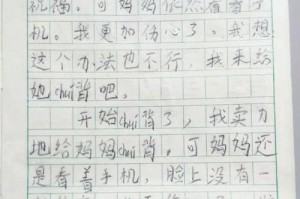 机
。可妈妈依然看着手
机。我更加伤心了。我想
这个办法也不行，我来给
她chuí背吧。
开始chuí背了，我卖力
地给妈妈chuí背。可妈妈还
是看着手机，脸上没有一